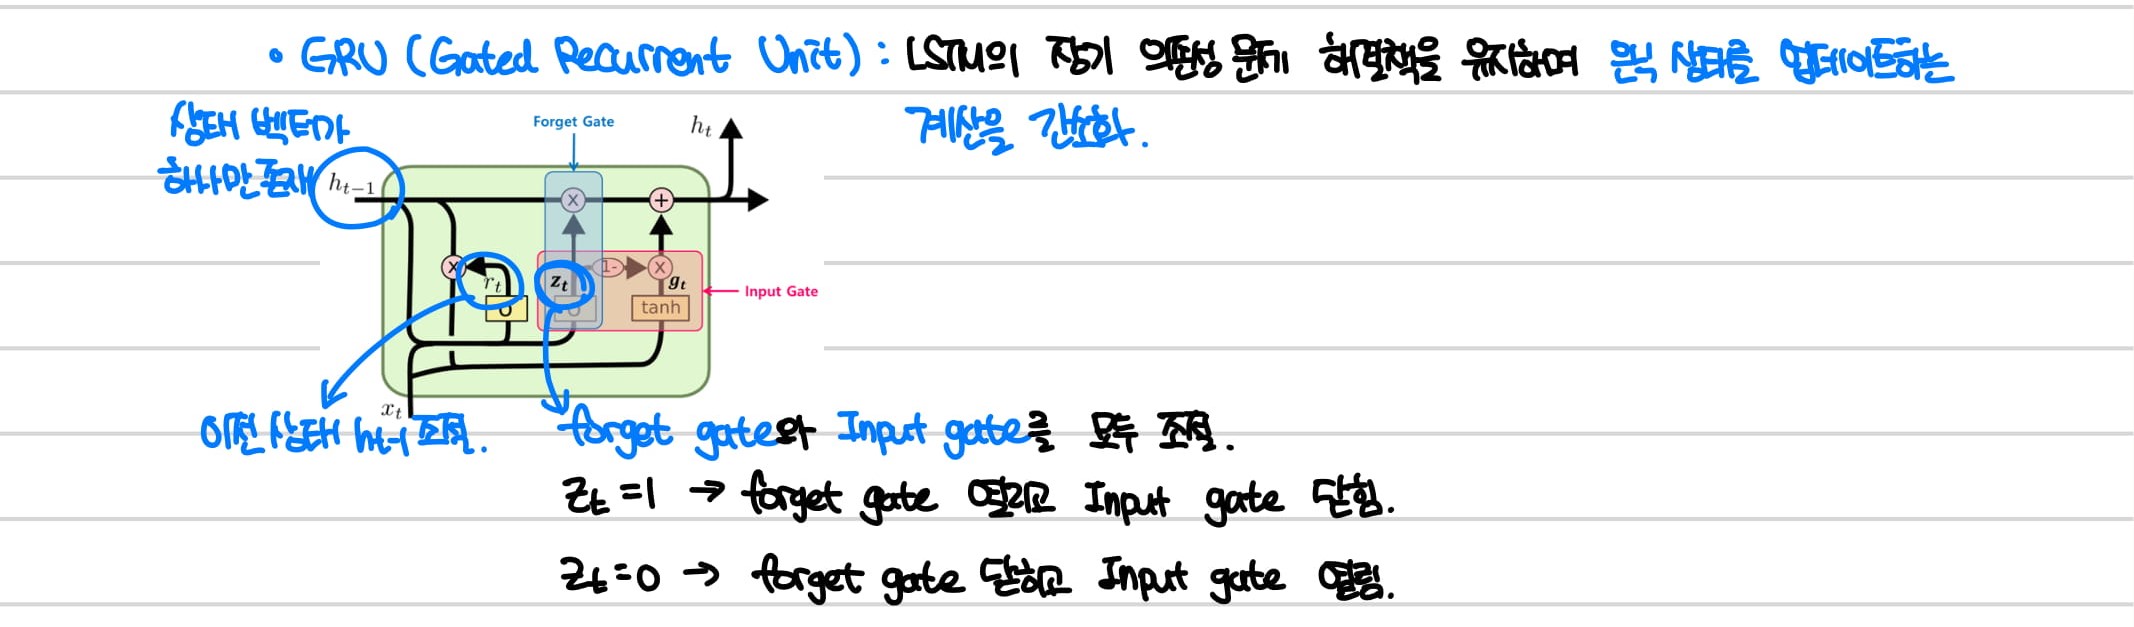 • GRU (Gated Recurrent Unit) : LSTM의 장기 의존성 문제 해결책을 유지하며 은닉 상태를 업데이트하는
계산을 간소화.
상태 벡터가
하나만 존재
Forget Gate
h_t
h_{t-1}
x
+
x
r_t
z_t
1-
x
g_t
Input Gate
σ
σ
tanh
x_t
이전 상태 h_{t-1} 조절.
forget gate와 Input gate를 모두 조절.
z_t = 1 → forget gate 열리고 Input gate 닫힘.
z_t = 0 → forget gate 닫히고 Input gate 열림.